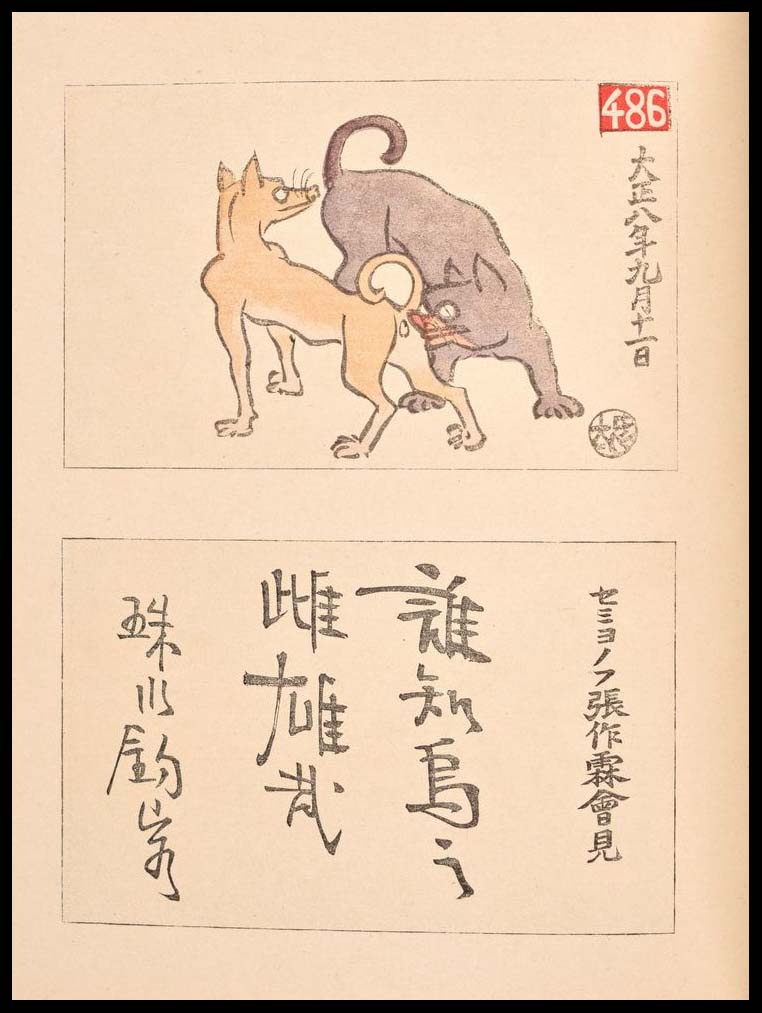 486
大正八年九月十一日
セミヨノフ張作霖會見
誰知烏之
雌雄哉
珠川釣